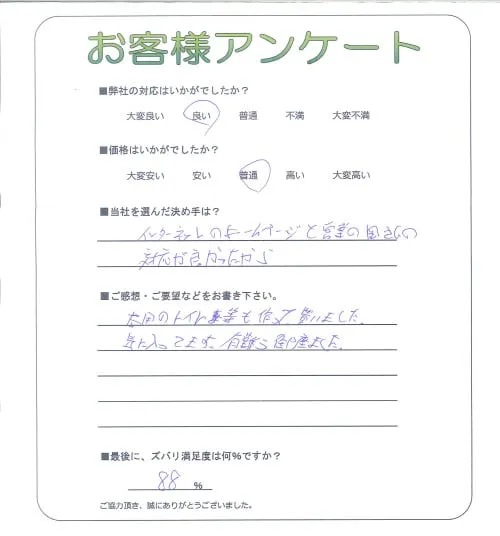 お客様アンケート
■弊社の対応はいかがでしたか？
大変良い 良い 普通 不満 大変不満
■価格はいかがでしたか？
大変安い 安い 普通 高い 大変高い
■当社を選んだ決め手は？
インターネットのホームページと営業の の
対応が良かったから
■ご感想・ご要望などをお書き下さい。
のトイレ も作って いました。
気に入ってます。有難う御座ました。
■最後に、ズバリ満足度は何%ですか？
88 %
ご協力頂き、誠にありがとうございました。